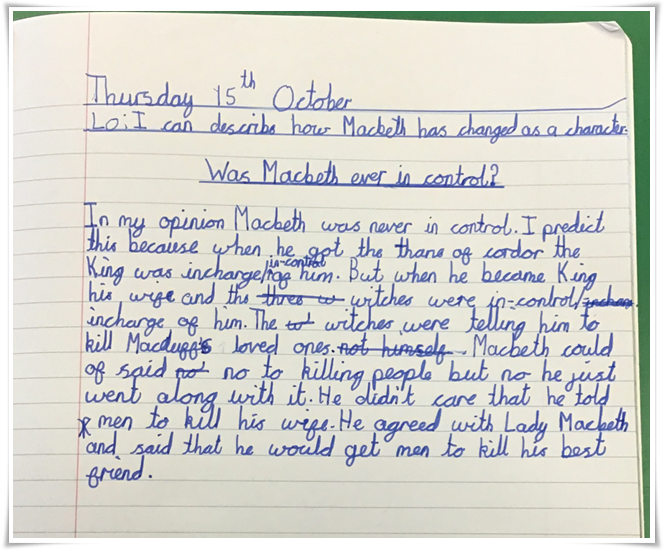 Thursday 15th October
Lo: I can describe how Macbeth has changed as a character.
Was Macbeth ever in control?
In my opinion Macbeth was never in control. I predict
this because when he got the thane of cordor the
King was incharge/in-control of him. But when he became King
his wife and the three w witches were in-control/incharg.
incharge of him. The w witches were telling him to
kill Macduff's loved ones. not himself. Macbeth could
of said no' no to killing people but no he just
went along with it. He didn't care that he told
* men to kill his wife. He agreed with Lady Macbeth
and said that he would get men to kill his best
friend.